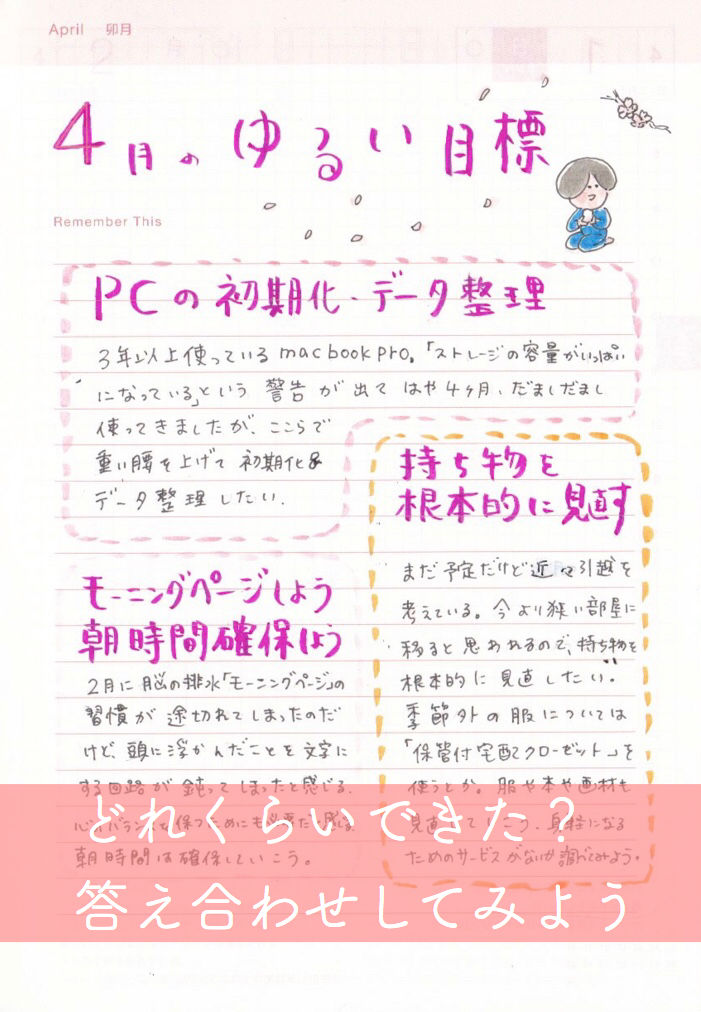 April 卯月
4月のゆるい目標
Remember This
PCの初期化・データ整理
3年以上使っているmacbook pro。「ストレージの容量がいっぱい
になっている」という 警告が出て はや4ヶ月、だましだまし
使ってきましたが、ここらで
重い腰を上げて 初期化&
データ整理したい.
持ち物を
根本的に見直す
まだ予定だけど近々引越を
考えている。今より狭い部屋に
移ると思われるので、持ち物を
根本的に見直したい。
季節外の服については
「保管付宅配クローゼット」を
使うとか。服や本や画材も
見直していこう、身軽になる
ためのサービスがないか調べてみよう。
モーニングページしよう
朝時間確保しよう
2月に脳の排水「モーニングページ」の
習慣が途切れてしまったのだ
けど、頭に浮かんだことを文字に
する回路が鈍ってしまったと感じる.
心のバランスを保つためにも必要だと感じる
朝時間は確保していこう。
どれくらいできた?
答え合わせしてみよう